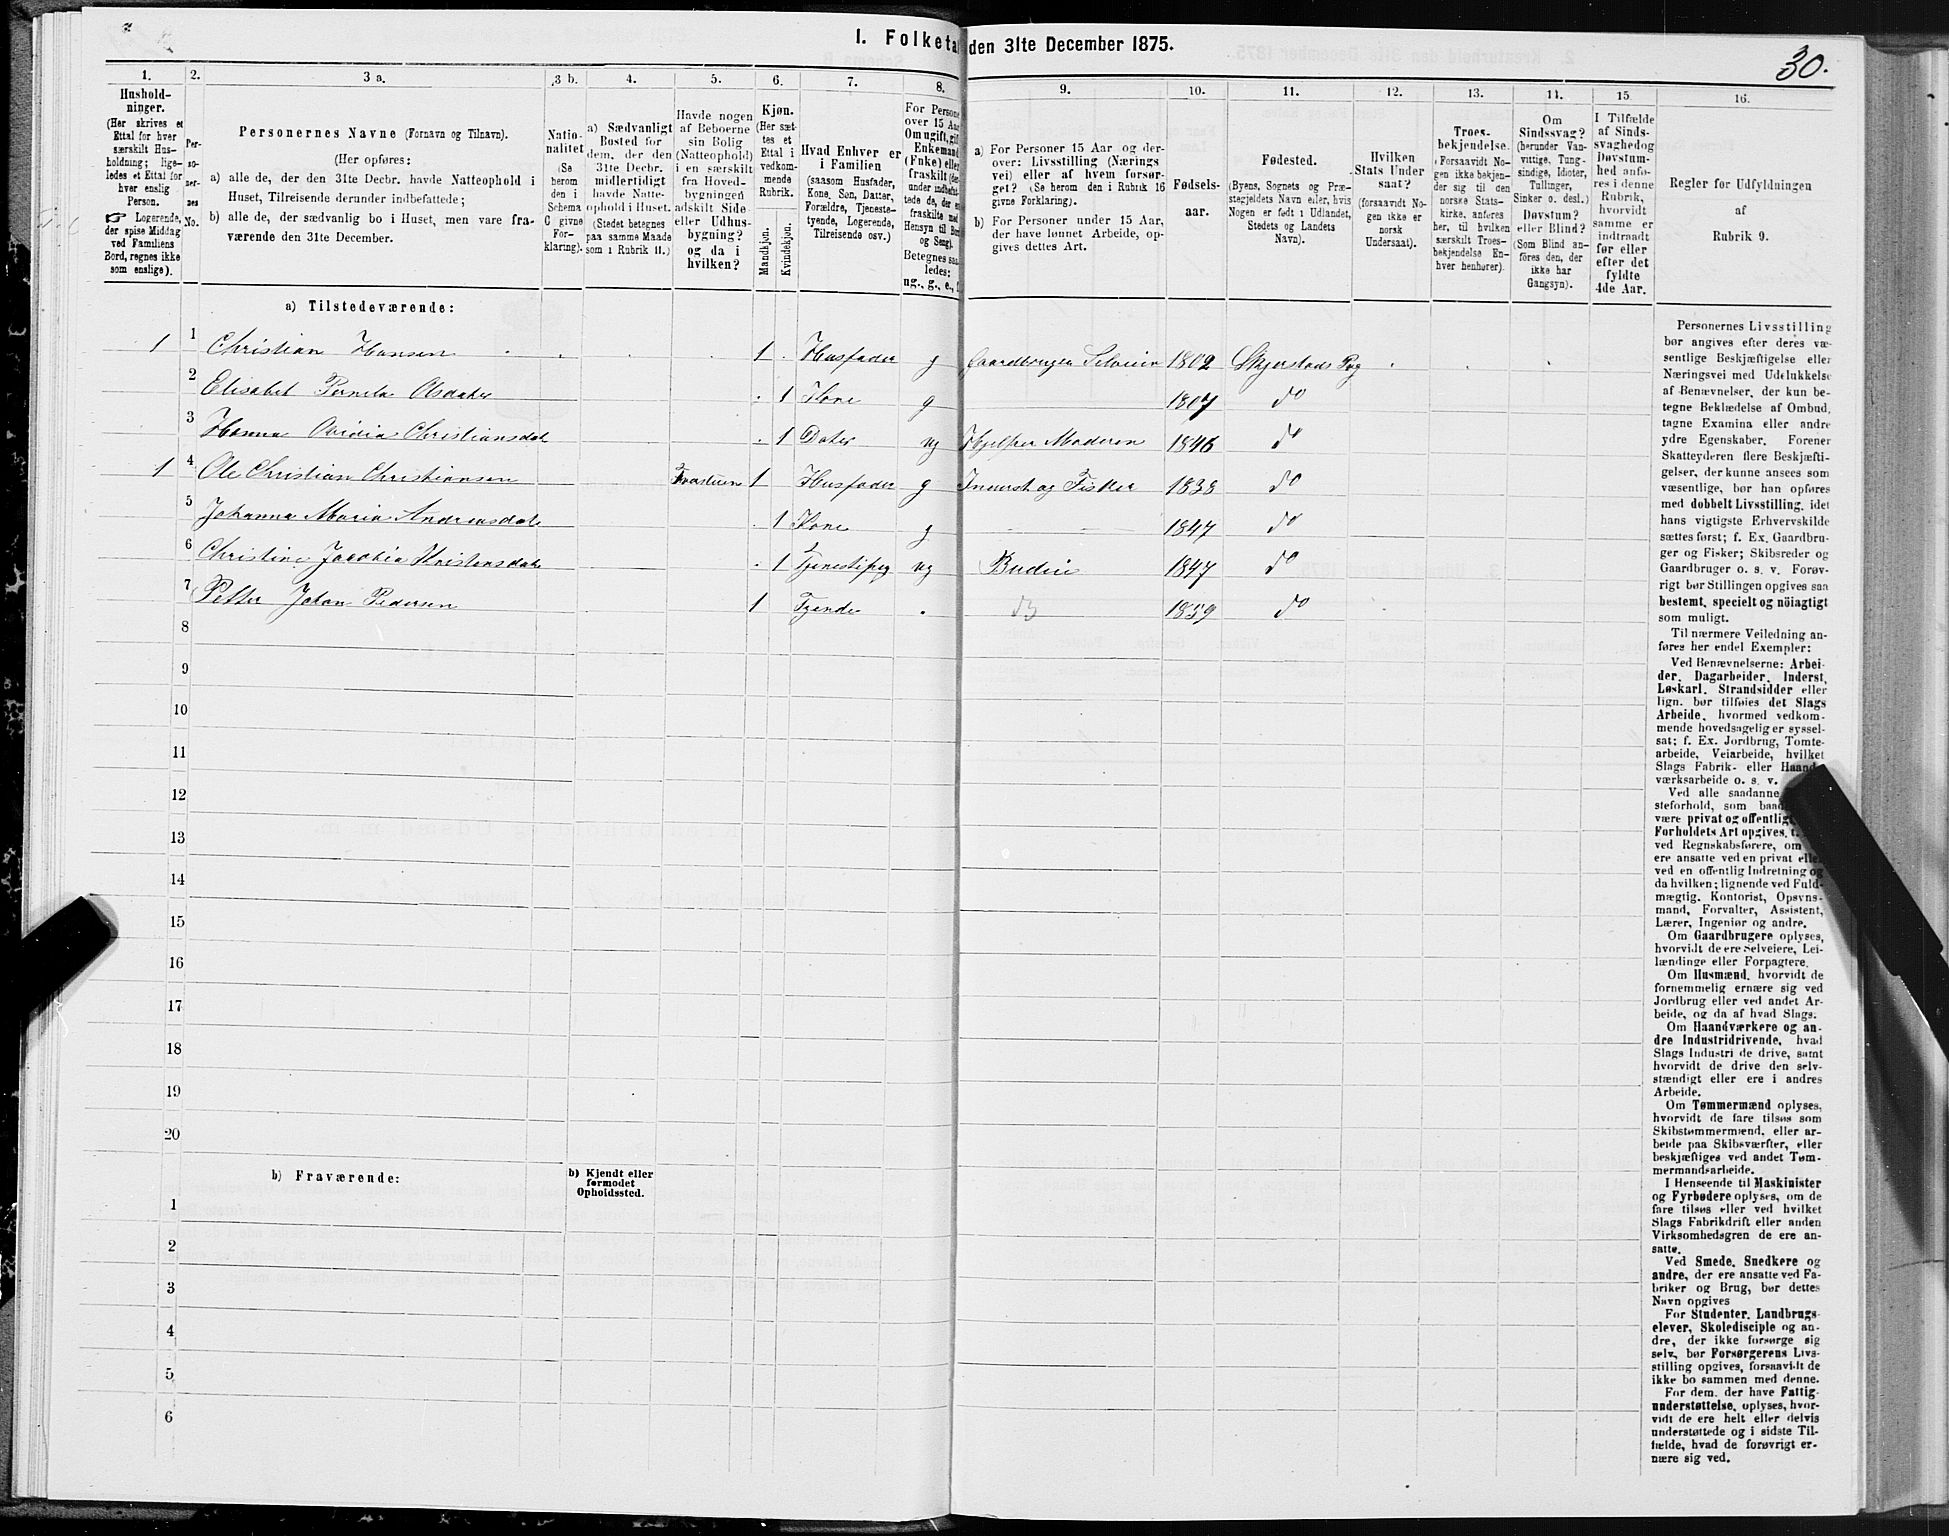 I. Folketal den 31te December 1875.
30.
1.
Hushold-
ninger.
(Her skrives et
Ettal for hver
særskilt Hus-
holdning; lige-
ledes et Ettal for
hver enslig
Person.
☞ Logerende,
der spise Middag
ved Familiens
Bord, regnes ikke
som enslige).
2.
Per-
so-
ner-
nes
No.
3 a.
Personernes Navne (Fornavn og Tilnavn).
(Her opføres:
a) alle de, der den 31te Decbr. havde Natteophold i
Huset, Tilreisende derunder indbefattede;
b) alle de, der sædvanlig bo i Huset, men vare fra-
værende den 31te December.
3 b.
Natio-
nalitet
(Se
herom
den i
Schema
C givne
For-
klaring).
4.
a) Sædvanligt
Bosted for
dem, der den
31te Decbr.
midlertidigt
havde Natte-
ophold i Huset.
(Stedet betegnes
paa samme Maade
som i Rubrik 11.)
5.
Havde nogen
af Beboerne
sin Bolig
(Natteophold)
i en særskilt
fra Hoved-
bygningen
adskilt Side-
eller Udhus-
bygning?
og da i
hvilken?
6.
Kjøn.
(Her sæt-
tes et
Ettal i
vedkom-
mende
Rubrik.
Mandkjøn.
Kvindekjøn.
7.
Hvad Enhver er
i Familien
(saasom Husfader,
Kone, Søn, Datter,
Forældre, Tjeneste-
tyende, Logerende,
Tilreisende osv.)
8.
For Persone
over 15 Aar
Om ugift, gift
Enkemand
(Enke) eller
fraskilt (der-
under indbefat-
tede de, der er
fraskilte med
Hensyn til Bord
og Seng).
Betegnes saa-
ledes:
ug., g., e., f.
9.
a) For Personer 15 Aar og der-
over: Livsstilling (Nærings
vei) eller af hvem forsør-
get? (Se herom den i Rubrik 16
givne Forklaring).
b) For Personer under 15 Aar,
der have lønnet Arbeide, op-
gives dettes Art.
10.
Fødsels-
aar.
11.
Fødested.
(Byens, Sognets og Præ-
stegjeldets Navn eller, hvis
Nogen er født i Udlandet,
Stedets og Landets
Navn).
12.
Hvilken
Stats Under
saat?
(forsaavidt No-
gen ikke er
norsk
Undersaat).
13.
Troes-
bekjendelse.
(Forsaavidt No-
gen ikke bekjen-
der sig til den
norske Stats-
kirke, anføres
her, til hvilken
særskilt Troes-
bekjendelse En-
hver henhører).
14.
Om
Sindssvag?
(herunder Van-
vittige, Tung-
sindige, Idioter,
Tullinger,
Sinker o. desl.)
Døvstum?
eller Blind?
(Som Blind an-
føres den, der
ikke har
Gangsyn).
15
I Tilfælde
af Sinds-
svaghedog
Døvstum-
hed anfø-
res i denne
Rubrik,
hvorvidt
samme er
indtraadt
før eller
efter det
fyldte
4de Aar.
16.
Regler for Udfyldningen
af
Rubrik 9.
a) Tilstedeværende:
1 1 Christian Hansen 1 Husfader g Gaardbruger Selveier 1802 Skjerstads Pg
2 Elisabet Pernila Olsdater 1 Kone g 1807 do
3 Hanna Ovidia Christiansdat 1 Dater ug Hjelper Moderen 1846 do
1 4 Ole Christian Christiansen 1 Husfader g Inderst og Fisker 1838 do
5 Johanna Maria Andreasdat 1 Kone g 1847 do
6 Christine Jacobia Kristensdat 1 Tjenestepig ug Budeie 1847 do
7 Petter Johan Pedersen 1 Tjende 1859 do
8
9
10
11
12
13
14
15
16
17
18
19
20
b) Fraværende:
b) Kjendt eller
formodet
Opholdssted.
1
2
3
4
5
6
Personernes Livsstilling
bør angives efter deres væ-
sentlige Beskjæftigelse eller
Næringsvei med Udelukkelse
af Benævnelser, der kun be-
tegne Beklædelse af Ombud,
tagne Examina eller andre
ydre Egenskaber. Forener
Skatteyderen flere Beskjæfti-
gelser, der kunne ansees som
væsentlige, bør han opføres
med dobbelt Livsstilling, idet
hans vigtigste Erhvervskilde
sættes først; f. Ex. Gaardbru-
ger og Fisker; Skibsreder og
Gaardbruger o. s. v. Forøv-
rigt bør Stillingen opgives saa
bestemt, specielt og nöiagtigt
som muligt.
Til nærmere Veiledning an-
føres her endel Exempler:
Ved Benævnelserne: Arbei-
der, Dagarbeider, Inderst,
Løskarl, Strandsidder eller
lign. bør tilføies det Slags
Arbeide, hvormed vedkom-
mende hovedsagelig er syssel-
sat; f. Ex. Jordbrug, Tomte-
arbeide, Veiarbeide, hvilket
Slags Fabrik- eller Haand-
værksarbeide o. s. v.
Ved alle saadanne
steforhold, som baade
være privat og offentligt,
Forholdets Art opgives, t.
ved Regnskabsførere, om
ere ansatte ved en privat eller
ved en offentlig Indretning og
da hvilken; lignende ved Fuld-
mægtig, Kontorist, Opsyns-
mand, Forvalter, Assistent,
Lærer, Ingeniør og andre.
Om Gaardbrugere oplyses,
hvorvidt de ere Selveiere, Lei-
lændinge eller Forpagtere.
Om Husmænd, hvorvidt de
fornemmelig ernære sig ved
Jordbrug eller ved andet Ar-
beide, og da af hvad Slags.
Om Haandværkere og an-
dre Industridrivende, hvad
Slags Industri de drive, samt
hvorvidt de drive den selv-
stændigt eller ere i andres
Arbeide.
Om Tømmermænd oplyses,
hvorvidt de fare tilsøs som
Skibstømmermænd, eller ar-
beide paa Skibsværfter, eller
beskjæftiges ved andet Tøm-
mermandsarbeide.
I Henseende til Maskinister
og Fyrbødere oplyses, om de
fare tilsøs eller ved hvilket
Slags Fabrikdrift eller anden
Virksomhedsgren de ere an-
satte.
Ved Smede, Snedkere og
andre, der ere ansatte ved Fa-
briker og Brug, bør dettes
Navn opgives
For Studenter, Landbrugs-
elever, Skoledisciple og an-
dre, der ikke forsørge sig
selv, bør Forsørgerens Livs-
stilling opgives, forsaavidt de
ikke bo sammen med denne.
For dem, der have Fattig-
understøttelse, oplyses, hvor-
vidt de ere helt eller delvis
understøttede og i sidste Til-
fælde, hvad de forøvrigt er-
nære sig ved.